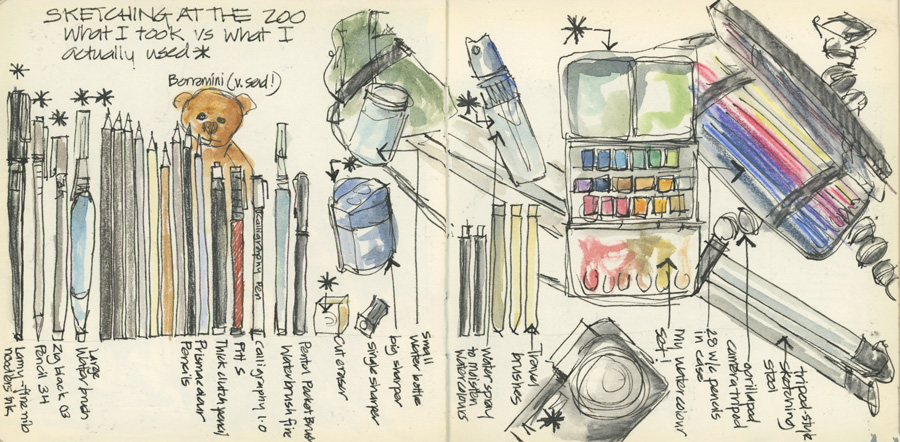 SKETCHING AT THE ZOO
What I took vs what I
actually used *
Borromini (v. sad!)
Lamy - fine nib
noodlers ink
Pencil 34
Zig black 03
Large
Waterbrush
Prismacolour
Pencils
Thick clutch pencil
Pitt S
Calligraphy 1.0
Calligraphy Pen
Waterbrush fine
Pentel Pocket Brush
Cut eraser
single sharper
big sharper
small
water bottle
Water spray
to moisten
watercolours
Travel
brushes
My watercolour
set!
28 w/c pencils
in case
gorillapod
camera tripod
tripod-style
sketching
stool